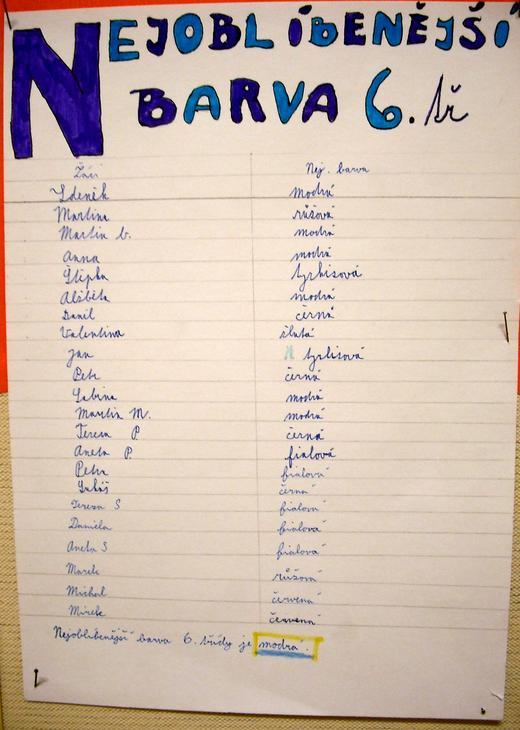 NEJOBLÍBENĚJŠÍ
BARVA 6. tř
Žáci Nej. barva
Zdeněk modrá
Martina růžová
Martin b. modrá
Anna modrá
Štěpka tyrkisová
Alžběta modrá
Daniel černá
Valentina žlutá
Jan tyrkisová
Petr černá
Sabina modrá
Martin M. modrá
Tereza P černá
Aneta P. fialová
Petra fialová
Lukáš černá
Tereza S fialová
Daniela fialová
Aneta S fialová
Marek růžová
Michal červená
Mirek červená
Nejoblíbenější barva 6. třídy je modrá.